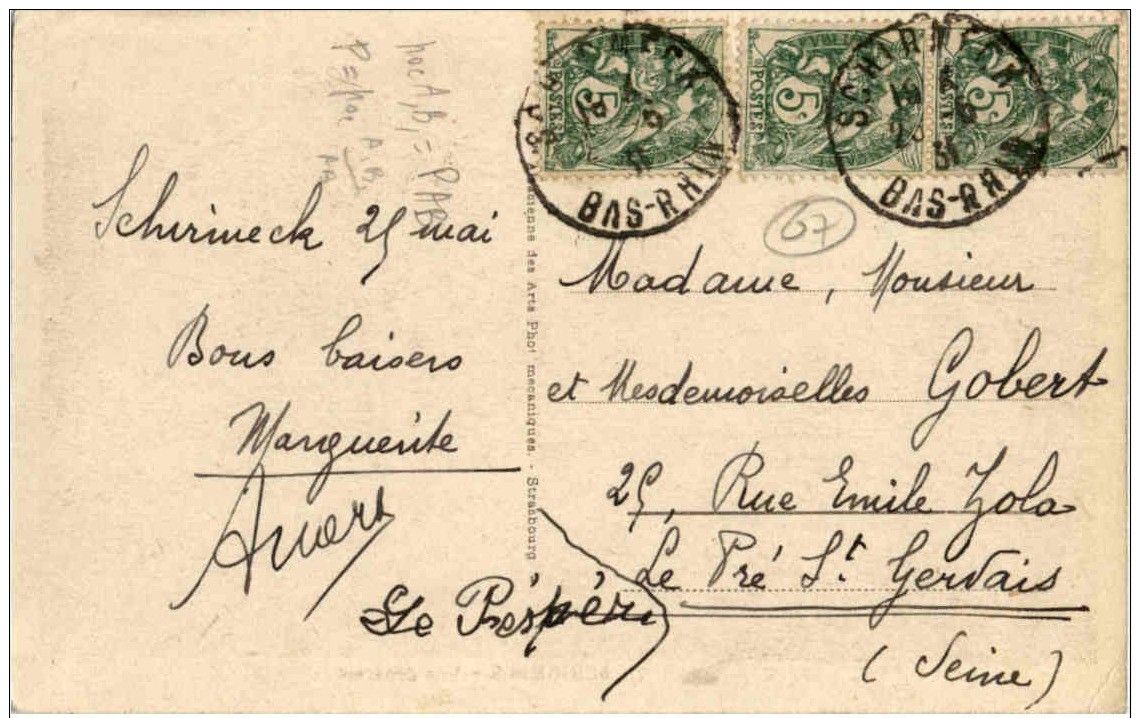 Schirmeck 25 mai
Bons baisers
Marguerite
Madame, Monsieur
et Mesdemoiselles Gobert
25, Rue Emile Zola
Le Pré St Gervais
(Seine)
67
5c
POSTES
5c
POSTES
5c
POSTES
SCHIRMECK
31
BAS-RHIN
SCHIRMECK
31
BAS-RHIN
des Arts Phot mecaniques. - Strasbourg